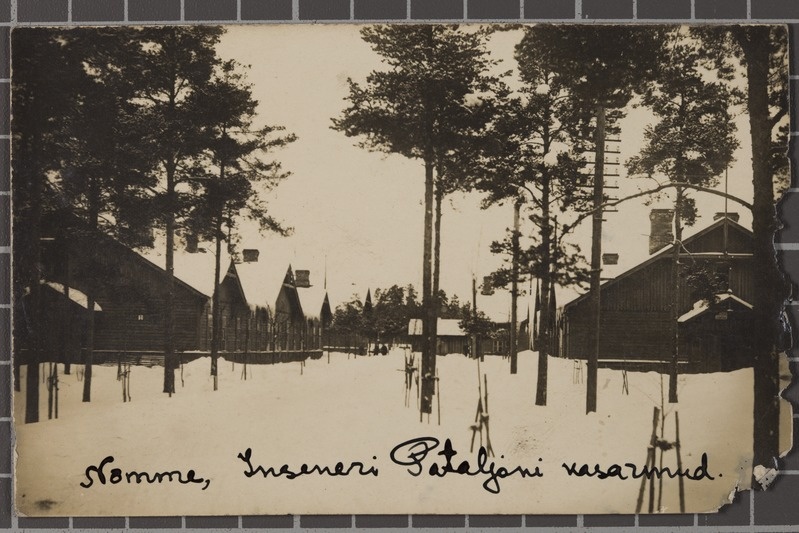 Nõmme, Inseneri Pataljoni kasarmud.